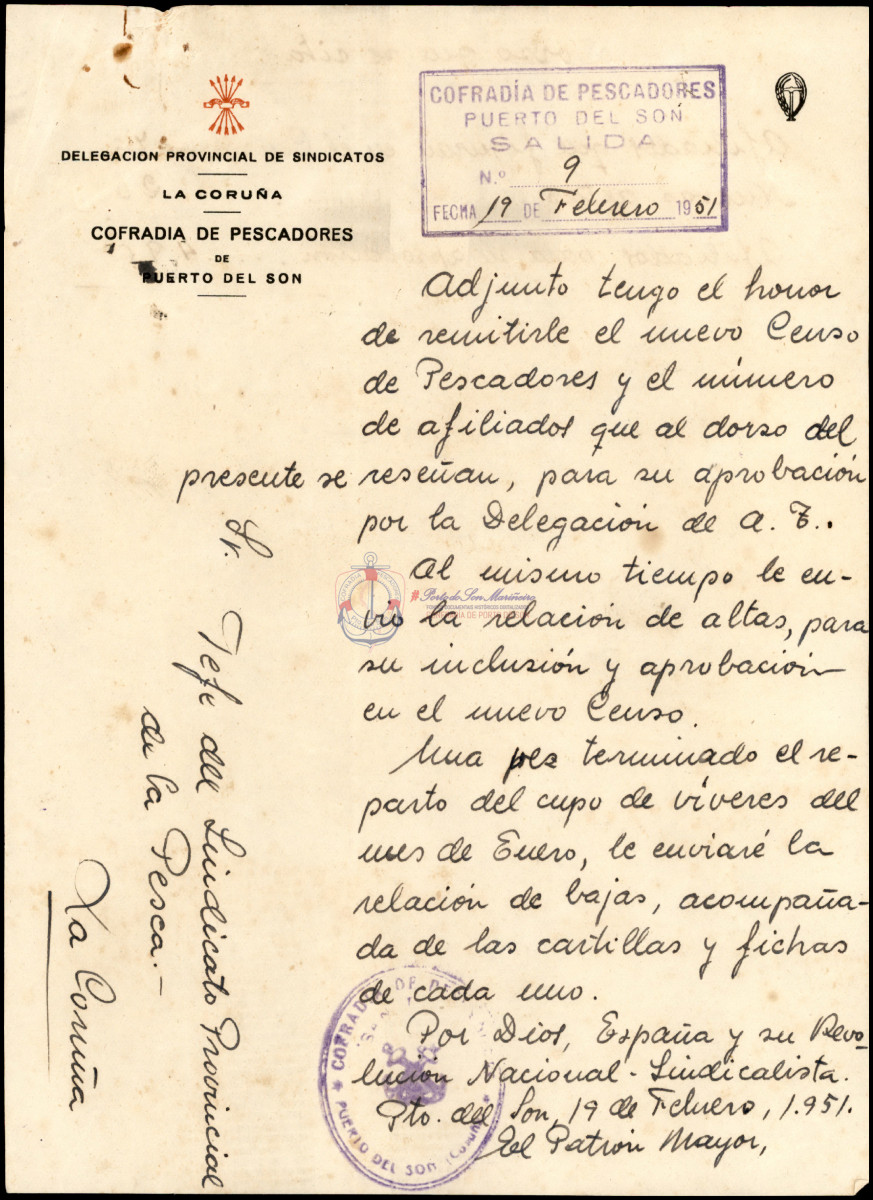 DELEGACION PROVINCIAL DE SINDICATOS
LA CORUÑA
COFRADIA DE PESCADORES
DE
PUERTO DEL SON
COFRADÍA DE PESCADORES
PUERTO DEL SON
SALIDA
N.º 9
FECHA 19 DE Febrero 1951
Adjunto tengo el honor
de remitirle el nuevo Censo
de Pescadores y el número
de afiliados que al dorso del
presente se reseñan, para su aprobación
por la Delegación de A. T..
Al mismo tiempo le en-
vío la relación de altas, para
su inclusión y aprobación
en el nuevo Censo.
Una vez terminado el re-
parto del cupo de víveres del
mes de Enero, le enviaré la
relación de bajas, acompaña-
da de las cartillas y fichas
de cada uno.
Por Dios, España y su Revo-
lución Nacional-Sindicalista.
Pto. del Son, 19 de Febrero, 1.951.
El Patrón Mayor,
Sr. Jefe del Sindicato Provincial
de la Pesca.-
La Coruña
#Porto do Son Mariñeiro
COFRADÍA DE
PUERTO DEL SON